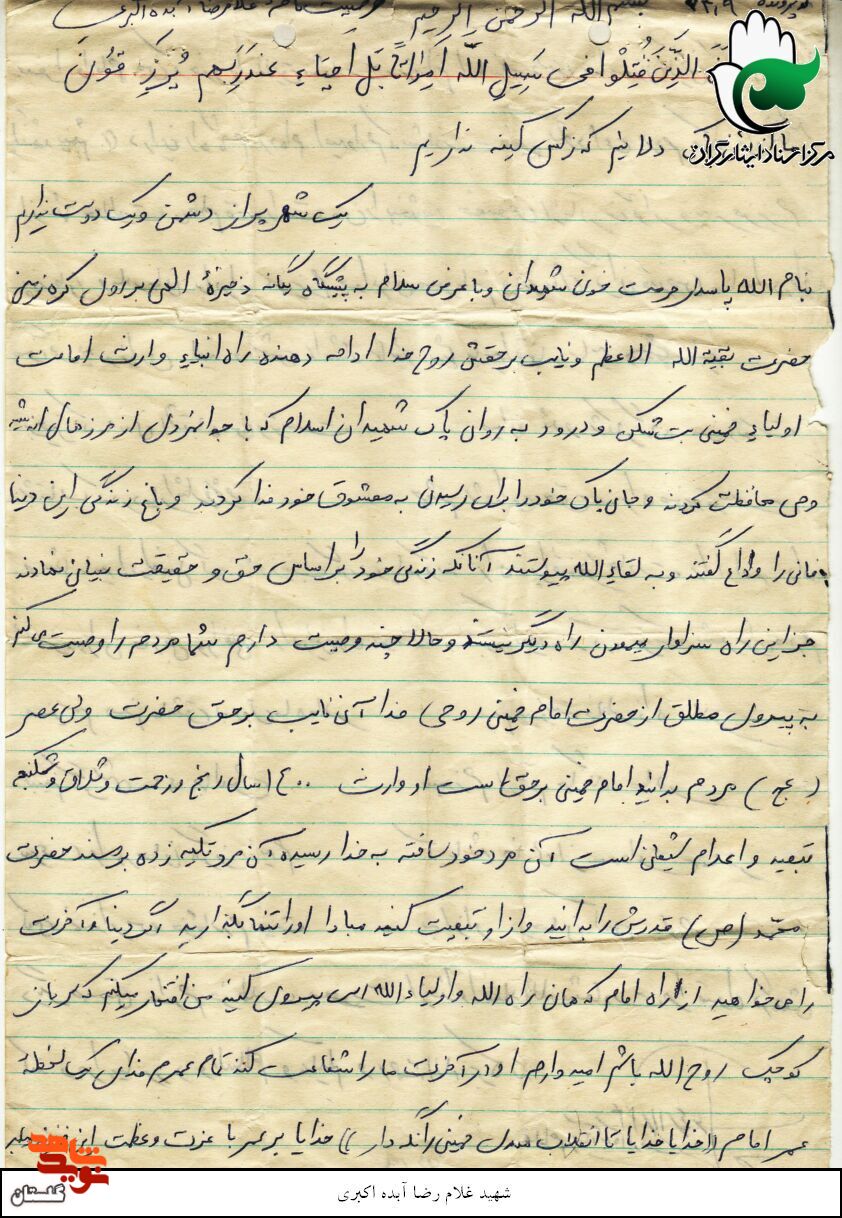 بسم الله الرحمن الرحیم
الَّذینَ قُتِلُوا فی سَبیلِ اللّه اَمواتاً بَل اَحیاءٍ عِندَ رَبِّهم یُرزَقُونَ
دلانیم که زکس کینه نداریم
یک شهر پر از دشمن و یک دوست نداریم
بنام الله پاسدار حرمت خون شهیدان و با عرض سلام به پیشگاه یگانه ذخیرهٔ الهی بر اول کره زمین
حضرت بقیة الله الاعظم و نایب برحقش روح خدا ادامه دهنده راه انبیاء وارث امامت
اولیاء خمینی بت شکن و درود به روان پاک شهیدان اسلام که با جوانمردی از مرز مال اندیشه
وحی محافظت کردند و جان پاک خود را برای رسیدن به معشوق خود فدا کردند و باغ زندگی این دنیا
فانی را وداع گفتند و به لقاء الله پیوستند آنانکه زندگی خود را بر اساس حق و حقیقت بنیان نهادند
جز این راه سزاوار پیمودن راه دیگر نیستند و حالا چند وصیت دارم شما مردم را وصیت می کنم
به پیروی مطلق از حضرت امام خمینی روحی فدا آن نایب برحق حضرت ولی عصر
(عج) مردم بدانید امام خمینی برحق است او وارث ۱۴۰۰ سال رنج و زحمت و شلاق و شکنجه
تبعید و اعدام شیعیان است آن مرد خود ساخته به خدا رسیده آن مرد تکیه زده بر مسند حضرت
محمد (ص) قدرش را بدانید و از او تبعیت کنید مبادا او را تنها بگذارید اگر دنیا و آخرت
را می خواهید از راه امام که همان راه الله و اولیاء الله است پیروی کنید من افتخار میکنم که سرباز
کوچک روح الله باشم امیدوارم او در آخرت ما را شفاعت کند تمام عمرم فدای یک لحظهٔ
عمر امام ((خدایا خدایا تا انقلاب مهدی خمینی را نگه دار)) خدایا بر عمر با عزت و عظمت این
مرکز اسناد ایثارگران
نوید شاهد
گلستان
شهید غلام رضا آبده اکبری